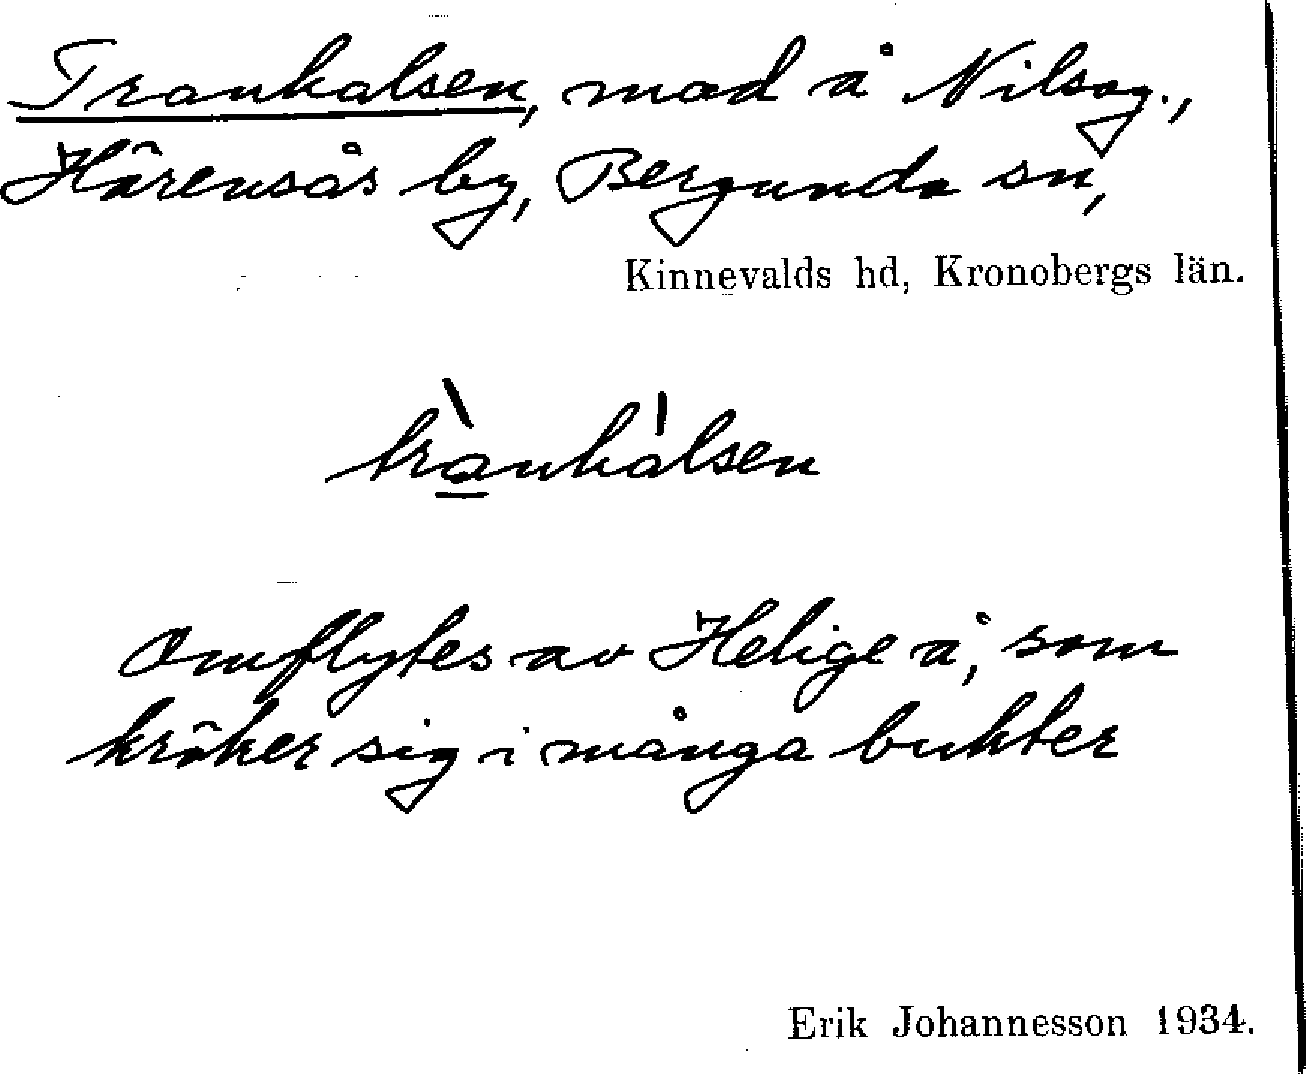 Tranhalsen, mad å Nilsag.,
Härensås by, Bergunda sn,
Kinnevalds hd, Kronobergs län.
trànhálsen
Omflytes av Helige å, som
kröker sig i många bukter
Erik Johannesson 1934.